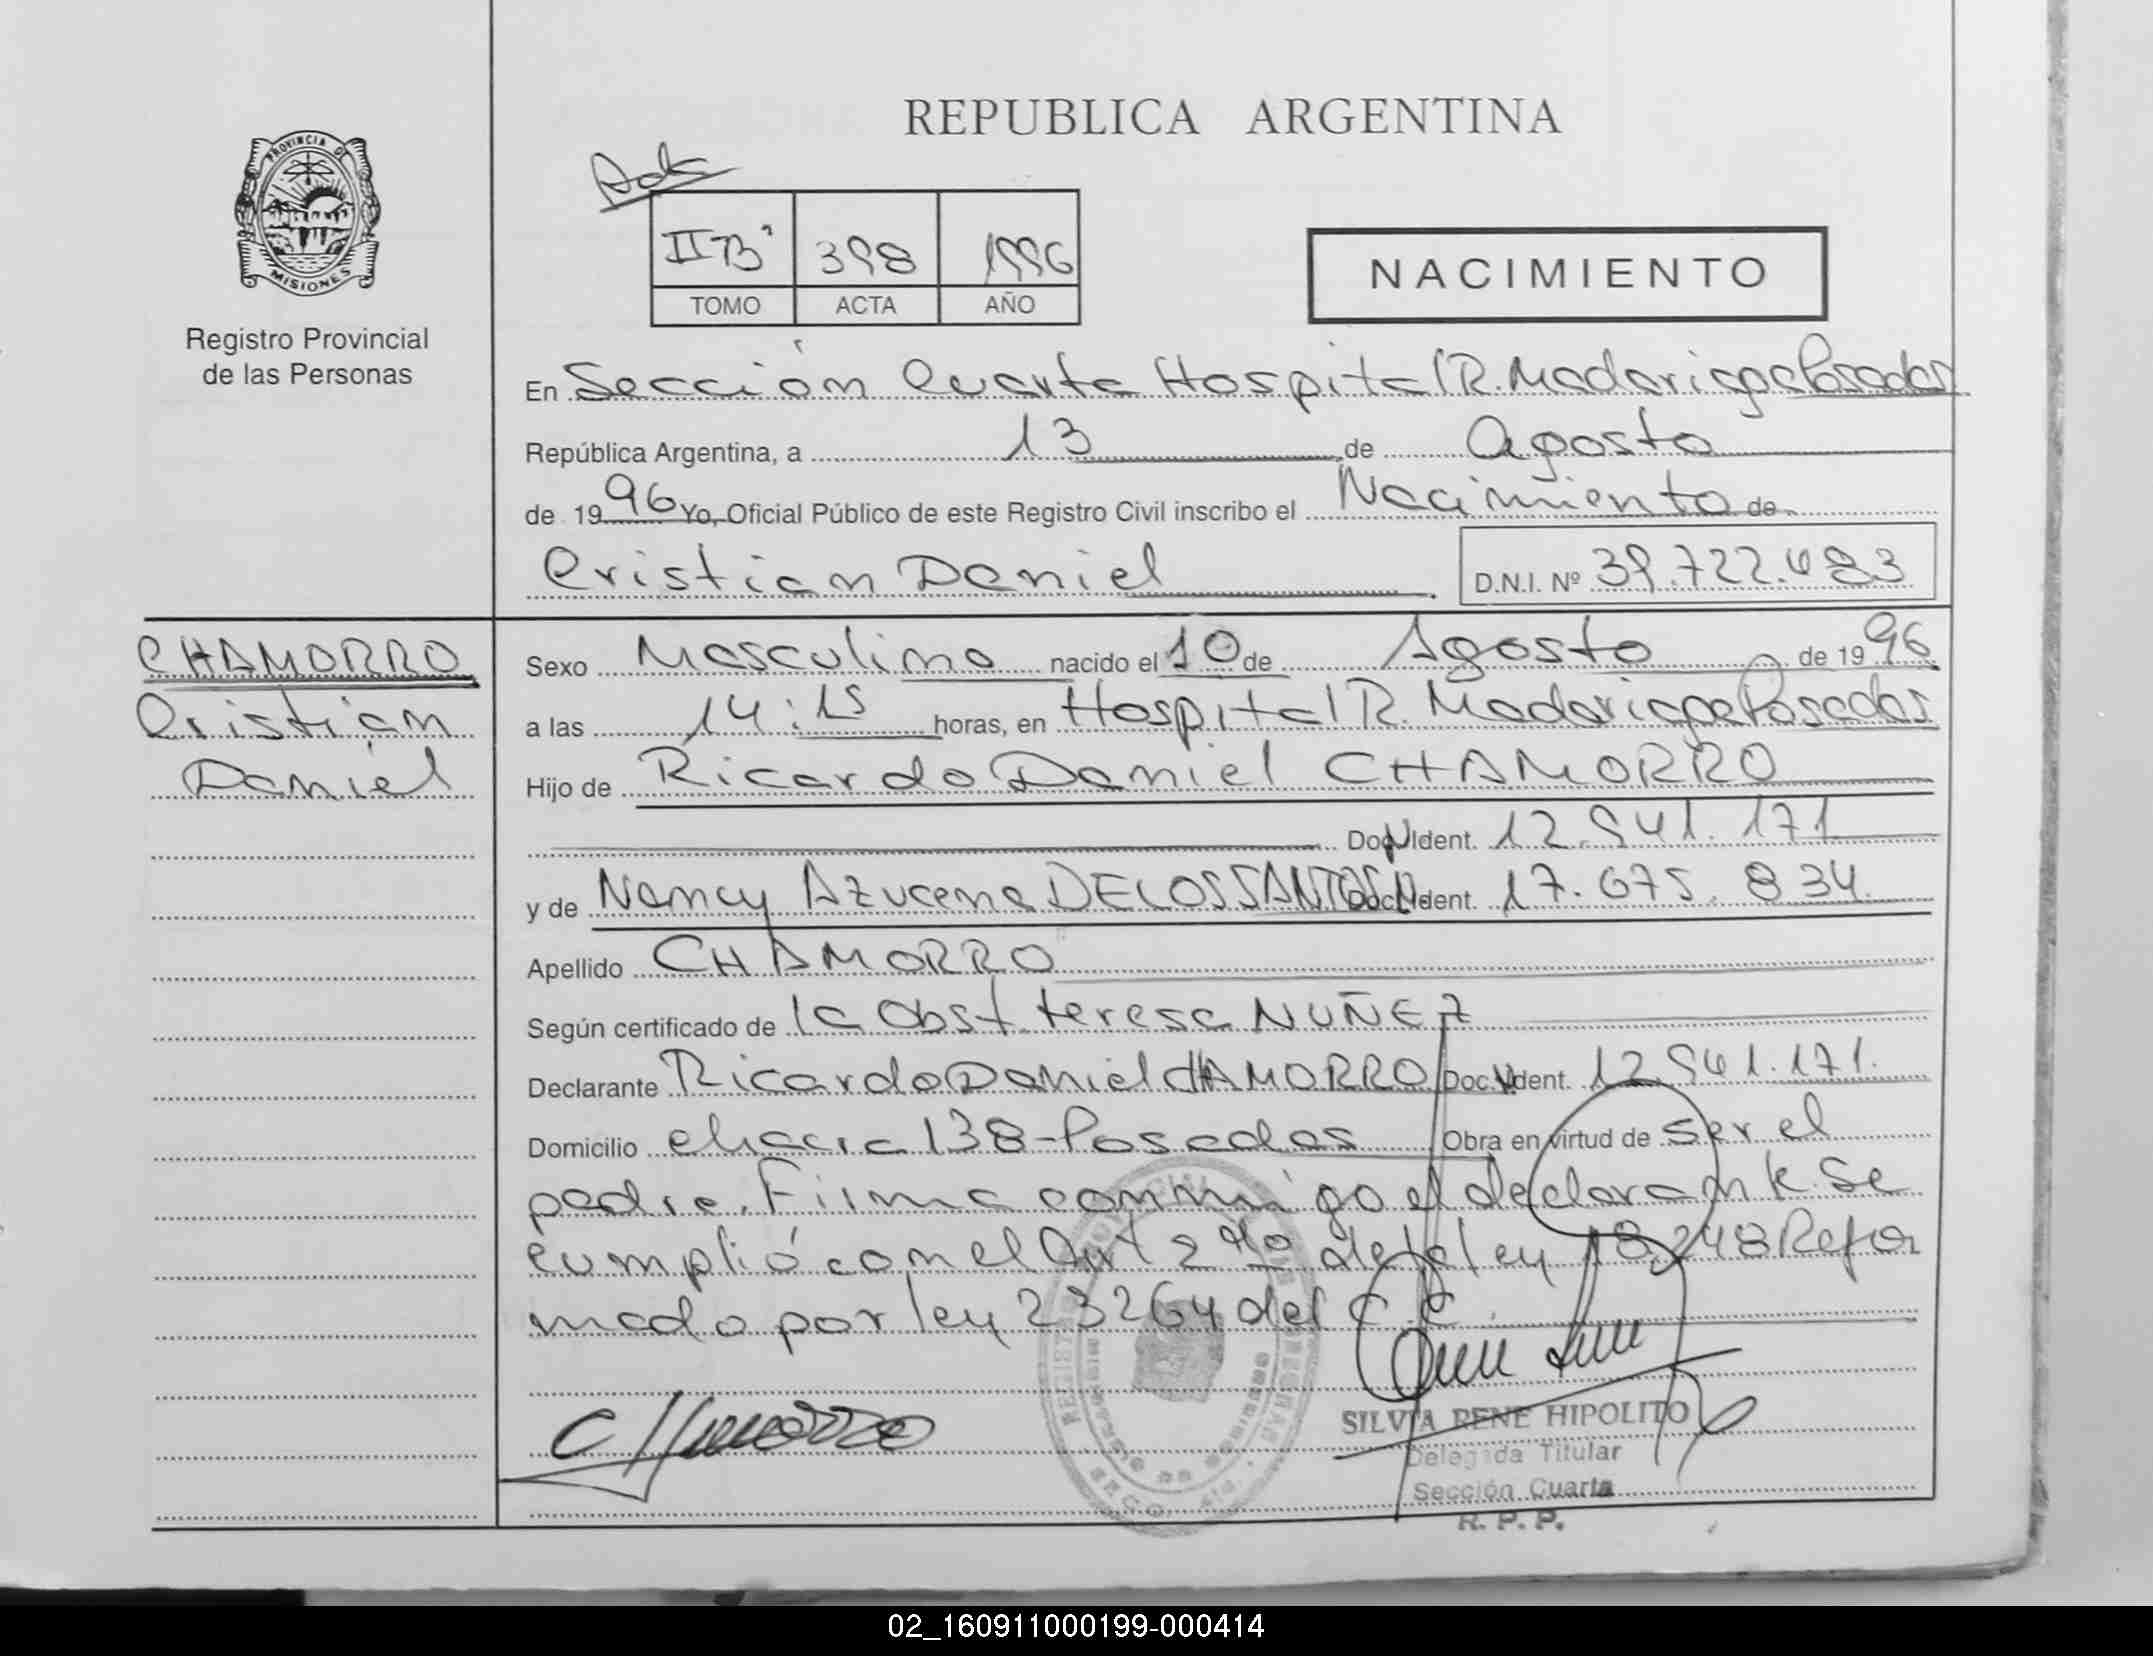 REPUBLICA ARGENTINA
PROVINCIA DE MISIONES
Registro Provincial
de las Personas
II "B" 398 1996
TOMO ACTA AÑO
NACIMIENTO
En Sección Cuarta Hospital R. Madariaga Posadas
República Argentina, a 13 de Agosto
de 1996 Yo, Oficial Público de este Registro Civil inscribo el Nacimiento de
Cristian Daniel D.N.I. Nº 39.722.483
CHAMORRO
Cristian
Daniel
Sexo Masculino nacido el 10 de Agosto de 1996
a las 14:15 horas, en Hospital R. Madariaga Posadas
Hijo de Ricardo Daniel CHAMORRO
Doc. Ident. 12.941.171
y de Nancy Azucena DE LOS SANTOS Doc. Ident. 17.675.834
Apellido CHAMORRO
Según certificado de la Obst teresa NUÑEZ
Declarante Ricardo Daniel CHAMORRO Doc. Ident. 12.941.171.
Domicilio chacra 138-Posadas Obra en virtud de ser el
padre. Firma conmigo el declarante. Se
cumplió con el Art 2do de la ley 18.248 Refor
mado por ley 23264 del C.C.
Chamorro
SILVIA RENE HIPOLITO
Delegada Titular
Sección Cuarta
R. P. P.
02_160911000199-000414